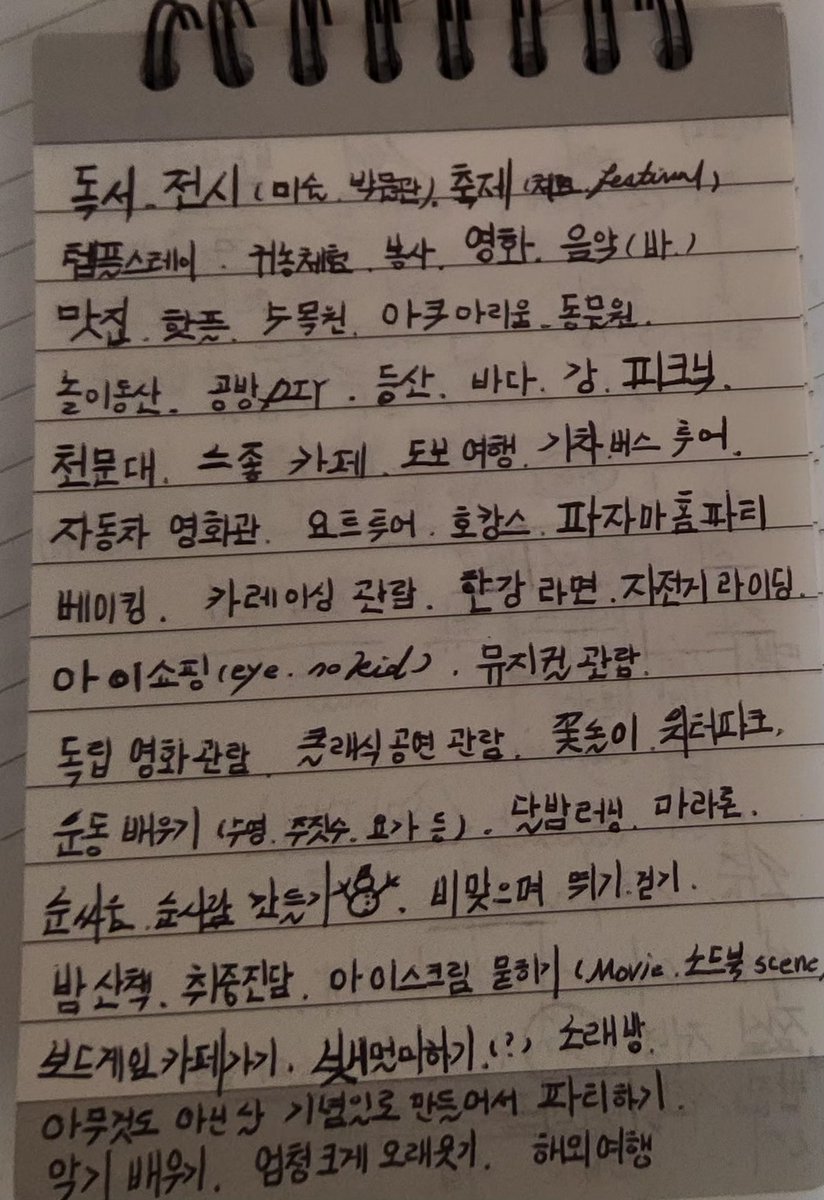 독서. 전시 (미술. 박물관). 축제 (festival)
템플스테이. 귀농체험. 봉사. 영화. 음악(바.)
맛집. 핫플. 수목원. 아쿠아리움. 동물원.
놀이동산. 공방, DIY. 등산. 바다. 강. 피크닉.
천문대. 노좋 카페. 도보 여행. 기차. 버스 투어.
자동차 영화관. 요트투어. 호캉스. 파자마 홈파티
베이킹. 카레이싱 관람. 한강 라면. 자전거 라이딩.
아이쇼핑(eye. no kid). 뮤지컬 관람.
독립 영화관람. 클래식 공연 관람. 꽃놀이. 워터파크.
운동 배우기 (수영. 주짓수. 요가 등). 달밤러닝. 마라톤.
눈싸움. 눈사람 만들기. 비맞으며 뛰기. 걷기.
밤 산책. 취중진담. 아이스크림 묻히기 (Movie. 노트북 scene)
보드게임 카페가기. (?) 노래방.
아무것도 아닌 날 기념일로 만들어서 파티하기.
악기 배우기. 엄청 크게 오래웃기. 해외여행